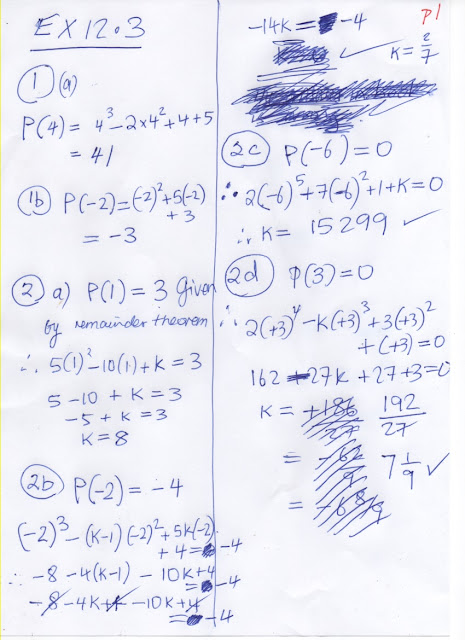 EX 12.3
① (a)
P(4) = 4³ - 2×4² + 4 + 5
= 41
①b P(-2) = (-2)² + 5(-2)
+ 3
= -3
② a) P(1) = 3 Given
by remainder theorem
∴ 5(1)² - 10(1) + K = 3
5 - 10 + K = 3
-5 + K = 3
K = 8
②b P(-2) = -4
(-2)³ - (K-1)(-2)² + 5K(-2)
+ 4 = -4
∴ -8 - 4(K-1) - 10K + 4
= -4
-8 - 4K + 4 - 10K + 4
= -4
P1
-14K = -4
✓ K = 2/7
②c P(-6) = 0
∴ 2(-6)⁵ + 7(-6)² + 1 + K = 0
∴ K = 15299 ✓
②d P(3) = 0
∴ 2(+3)⁴ - K(+3)³ + 3(+3)²
+ (+3) = 0
162 - 27K + 27 + 3 = 0
K = +186/27 192/27
= -62/9 7 1/9 ✓
= -6 8/9